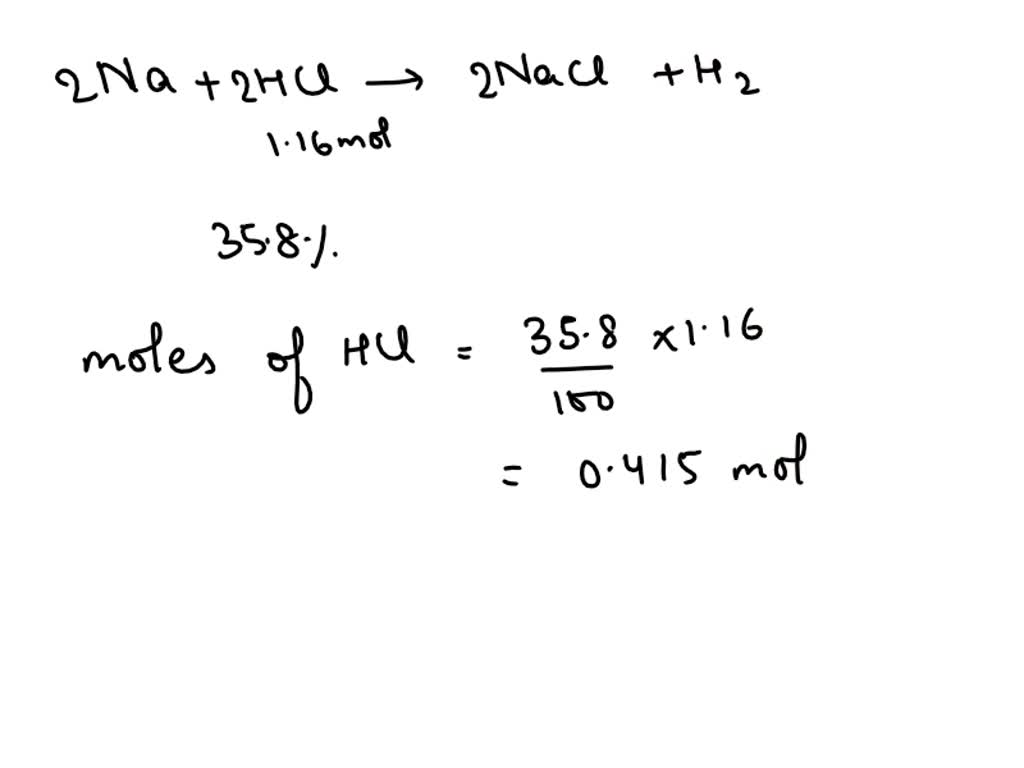 2Na + 2HCl → 2NaCl + H₂
1.16mol
35.8%.
moles of HCl = 35.8/100 x1.16
= 0.415 mol